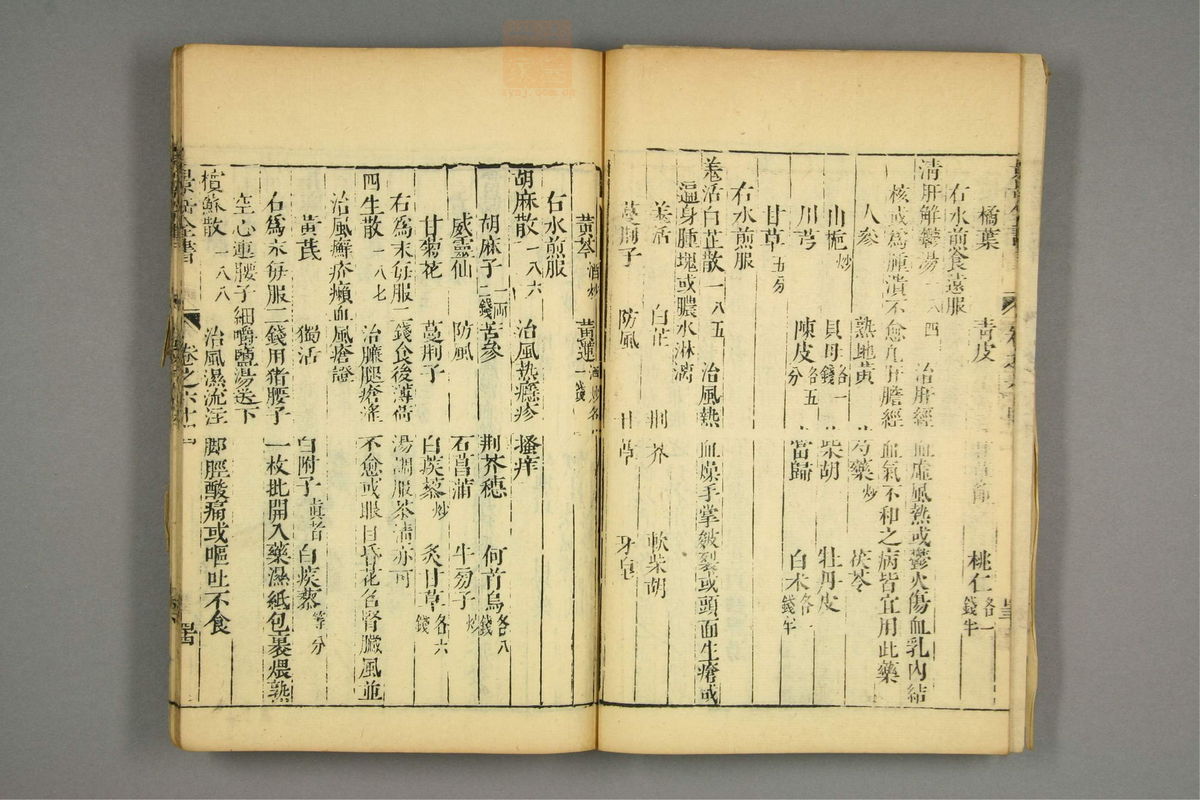 橘葉 青皮 桃仁各一錢半
右水煎食遠服
清肝解鬱湯 一八四 治肝經血虛風熱或鬱火傷血乳內結
核或爲腫潰不愈凡肝膽經血氣不和之病皆宜用此藥
人參 熟地黃 芍藥炒 茯苓
山梔炒 貝母各一錢 柴胡 牡丹皮
川芎 陳皮各五分 當歸 白朮各一錢半
甘草五分
右水煎服
羗活白芷散 一八五 治風熱血燥手掌皴裂或頭面生瘡或
遍身腫塊或膿水淋漓
羗活 白芷 荆芥 軟柴胡
蔓荆子 防風 甘草 牙皂
黃芩酒炒 黃連酒炒各一錢
右水煎服
胡麻散 一八六 治風熱癮疹搔痒
胡麻子一兩二錢 苦參 荆芥穗 何首烏各八錢
威靈仙 防風 石菖蒲 牛蒡子炒
甘菊花 蔓荆子 白蒺藜炒 炙甘草各六錢
右爲末每服二錢食後薄荷湯調服茶清亦可
四生散 一八七 治臁腿瘡淹不愈或眼目昏花名腎臟風並
治風癬疥癩血風瘡證
黃芪 獨活 白附子 白蒺藜等分
右爲末每服二錢用猪腰子一枚批開入藥濕紙包裹煨熟
空心連腰子細嚼鹽湯送下
檳蘇散 一八八 治風濕流注脚脛酸痛或嘔吐不食
景岳全書 卷之六十